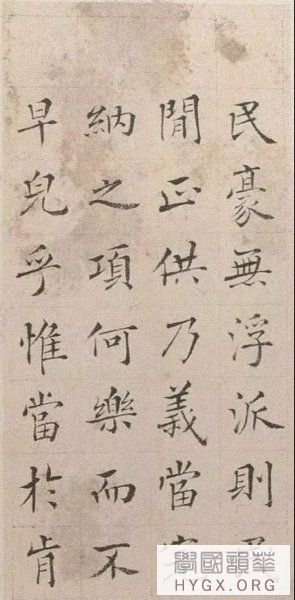 民豪無浮派則
閒正供乃義當
納之項何樂而不
早兒乎惟當於肯
學國韻華
HYGX.ORG